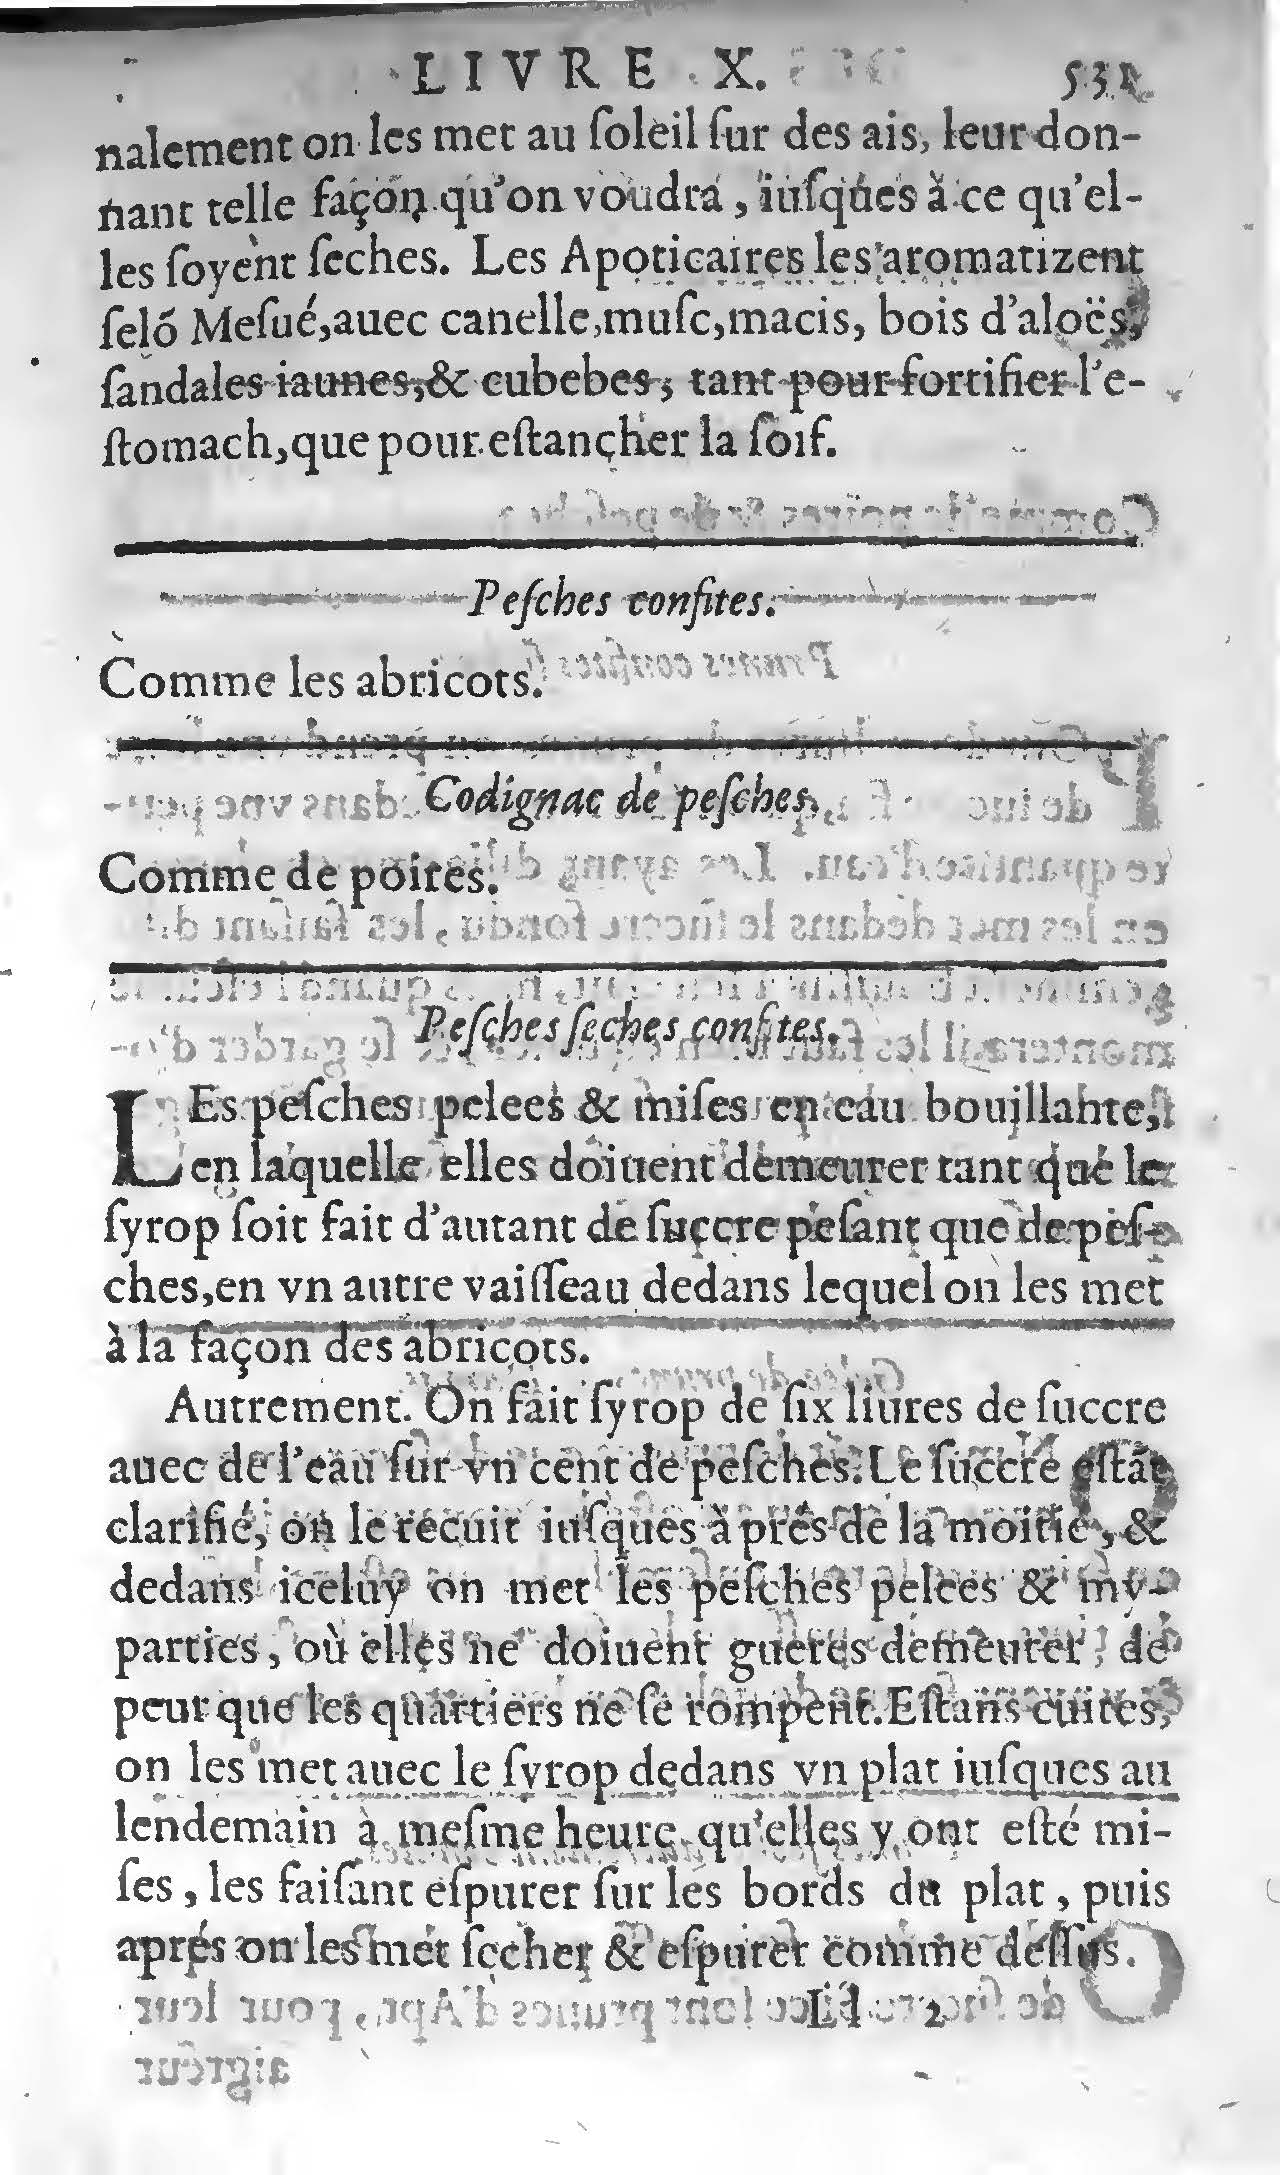 LIVRE X. 531
nalement on les met au ſoleil ſur des ais, leur don-
nant telle façon qu'on voudra, iuſques à ce qu'el-
les ſoyent ſeches. Les Apoticaires les aromatizent
ſelõ Meſué,auec canelle,muſc,macis, bois d'aloës,
ſandales iaunes,& cubebes, tant pour fortifier l'e-
ſtomach,que pour eſtancher la ſoif.
Peſches confites.
Comme les abricots.
Codignac de peſches.
Comme de poires.
Peſches ſeches confites.
LEs peſches pelees & miſes en eau bouillante,
en laquelle elles doiuent demeurer tant que le
ſyrop ſoit fait d'autant de ſuccre peſant que de peſ-
ches,en vn autre vaiſſeau dedans lequel on les met
à la façon des abricots.
Autrement. On fait ſyrop de ſix liures de ſuccre
auec de l'eau ſur vn cent de peſches. Le ſuccre eſtãt
clarifié, on le recuit iuſques à prés de la moitié, &
dedans iceluy on met les peſches pelees & my-
parties, où elles ne doiuent gueres demeurer, de
peur que les quartiers ne ſe rompent. Eſtans cuites,
on les met auec le ſyrop dedans vn plat iuſques au
lendemain à meſme heure qu'elles y ont eſté mi-
ſes, les faiſant eſpurer ſur les bords du plat, puis
aprés on les met ſecher & eſpurer comme deſſus.
Ll 2